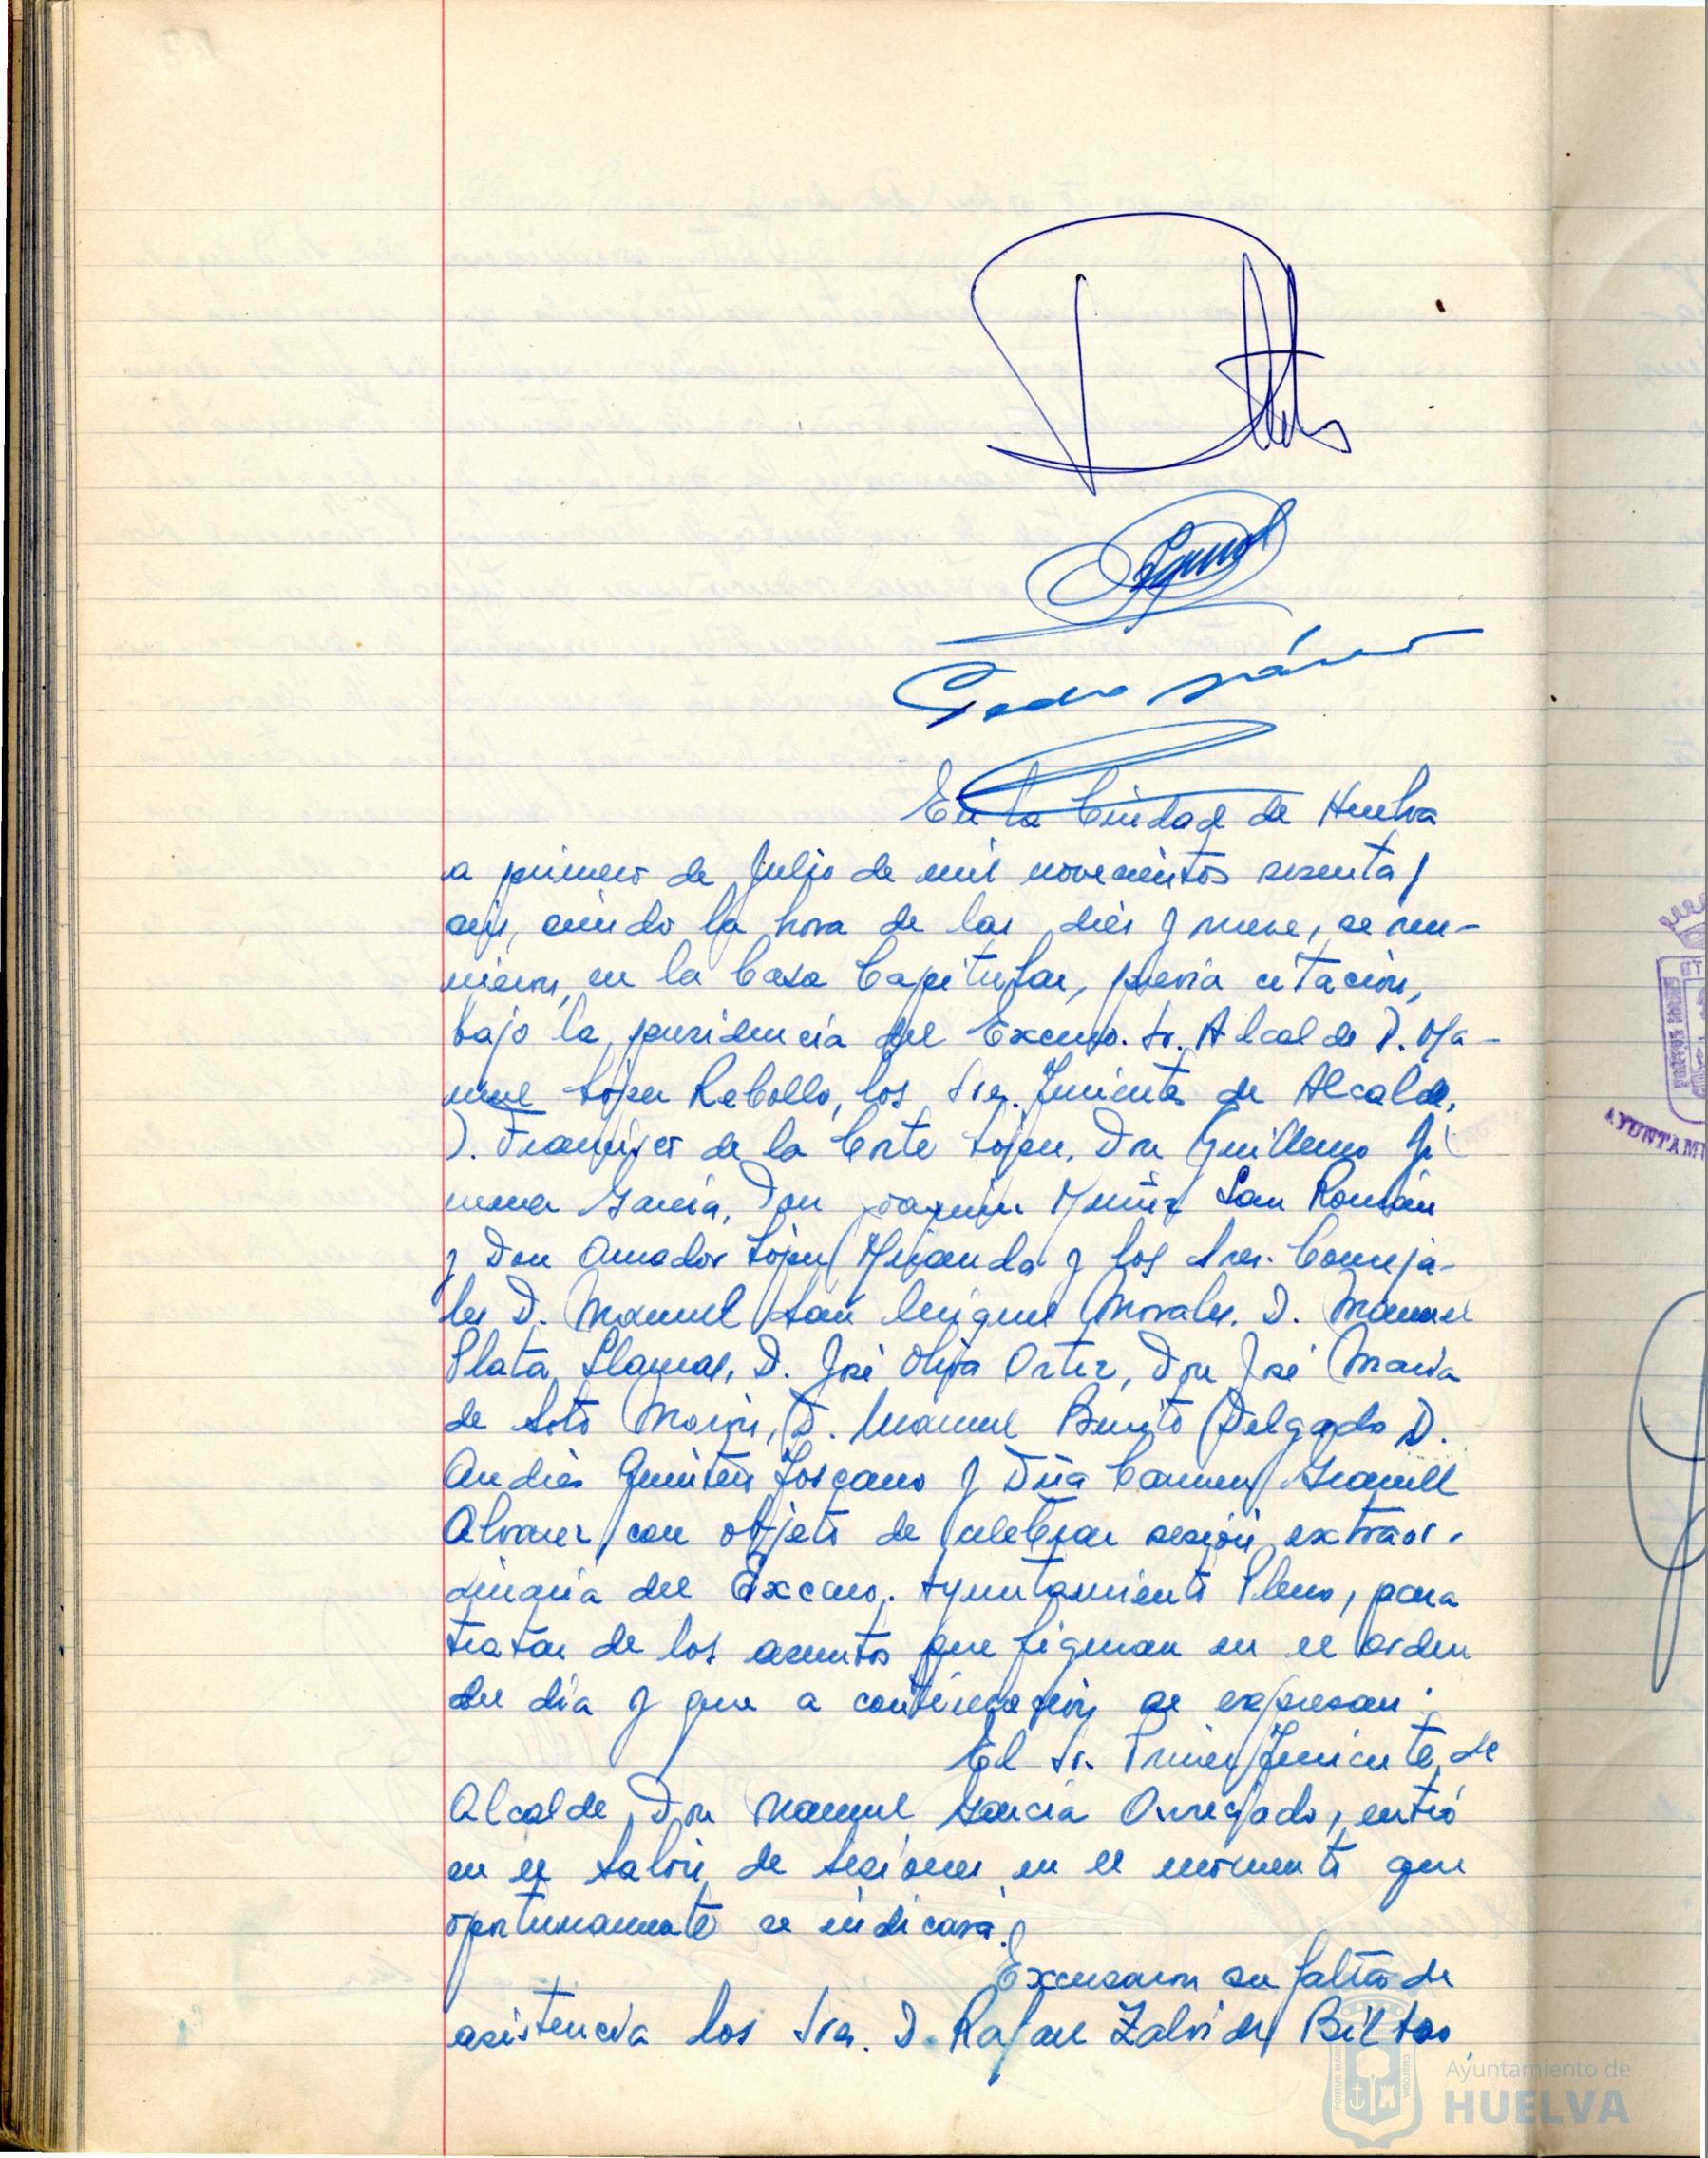 En la Ciudad de Huelva
a primero de Julio de mil novecientos sesenta y
seis, siendo la hora de las diez y nueve, se reu-
nieron, en la Casa Capitular, previa citación,
bajo la presidencia del Excmo. Sr. Alcalde D. Ma-
nuel López Rebollo, los Sres. Tenientes de Alcalde,
D. Francisco de la Corte López, Don Guillermo Ji
menez García, Don Joaquín Muñiz San Román
y Don Amador López Miranda y los Sres. Conceja-
les D. Manuel San Miguel Morales, D. Manuel
Plata Llamas, D. José Oliva Ortiz, Don José María
de Soto Morón, D. Manuel Benito Delgado D.
Andrés Quintero Toscano y Dña Carmen Granell
Alvarez con objeto de celebrar sesión extraor-
dinaria del Excmo. Ayuntamiento Pleno, para
tratar de los asuntos que figuran en el orden
del día y que a continuación se expresan:
El Sr. Primer Teniente de
Alcalde, Don Manuel García Orregado, entró
en el Salón de sesiones en el momento que
oportunamente se indicará.
Excusaron su falta de
asistencia los Sres. D. Rafael Zalvide Bilbao,
AYUNTAM
Ayuntamiento de
HUELVA